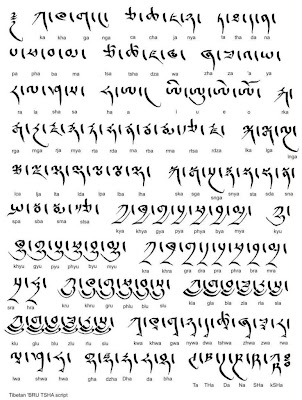 ༄༅། ཀ་ཁ་ག་ང་ ཅ་ཆ་ཇ་ཉ་ ཏ་ཐ་ད་ན་
ka kha ga nga ca cha ja nya ta tha da na
པ་ཕ་བ་མ་ ཙ་ཚ་ཛ་ཝ་ ཞ་ཟ་འ་ཡ་
pa pha ba ma tsa tsha dza wa zha za 'a ya
ར་ལ་ཤ་ས་ ཧ་ཨ། ཨི་ཨུ་ཨེ་ཨོ་ རྐ་
ra la sha sa ha a i u e o rka
རྒ་རྔ་རྗ་རྙ་རྟ་རྡ་རྣ་རྦ་རྨ་རྩ་རྫ། ལྐ་ལྒ་ལྔ་
rga rnga rja rnya rta rda rna rba rma rtsa rdza lka lga lnga
ལྕ་ལྗ་ལྟ་ལྡ་ལྤ་ལྦ་ལྷ། སྐ་སྒ་སྔ་སྙ་སྟ་སྡ་སྣ་
lca lja lta lda lpa lba lha ska sga snga snya sta sda sna
སྤ་སྦ་སྨ་སྩ། ཀྱ་ཁྱ་གྱ་པྱ་ཕྱ་བྱ་མྱ། ཀྱུ་
spa sba sma stsa kya khya gya pya phya bya mya kyu
ཁྱུ་གྱུ་པྱུ་ཕྱུ་བྱུ་མྱུ། ཀྲ་ཁྲ་གྲ་དྲ་པྲ་ཕྲ་བྲ་མྲ་
khyu gyu pyu phyu byu myu kra khra gra dra pra phra bra mra
སྲ་ཧྲ།
sra hra kla gla bla zla rla sla
klu glu blu zlu rlu slu kwa khwa gwa nywa dwa tshwa zwa rwa
ལྭ་ཤྭ་ཧྭ།
lwa shwa hwa gha dzha Dha da bha Ta THa Da Na SHa kSHa
Tibetan 'BRU TSHA script